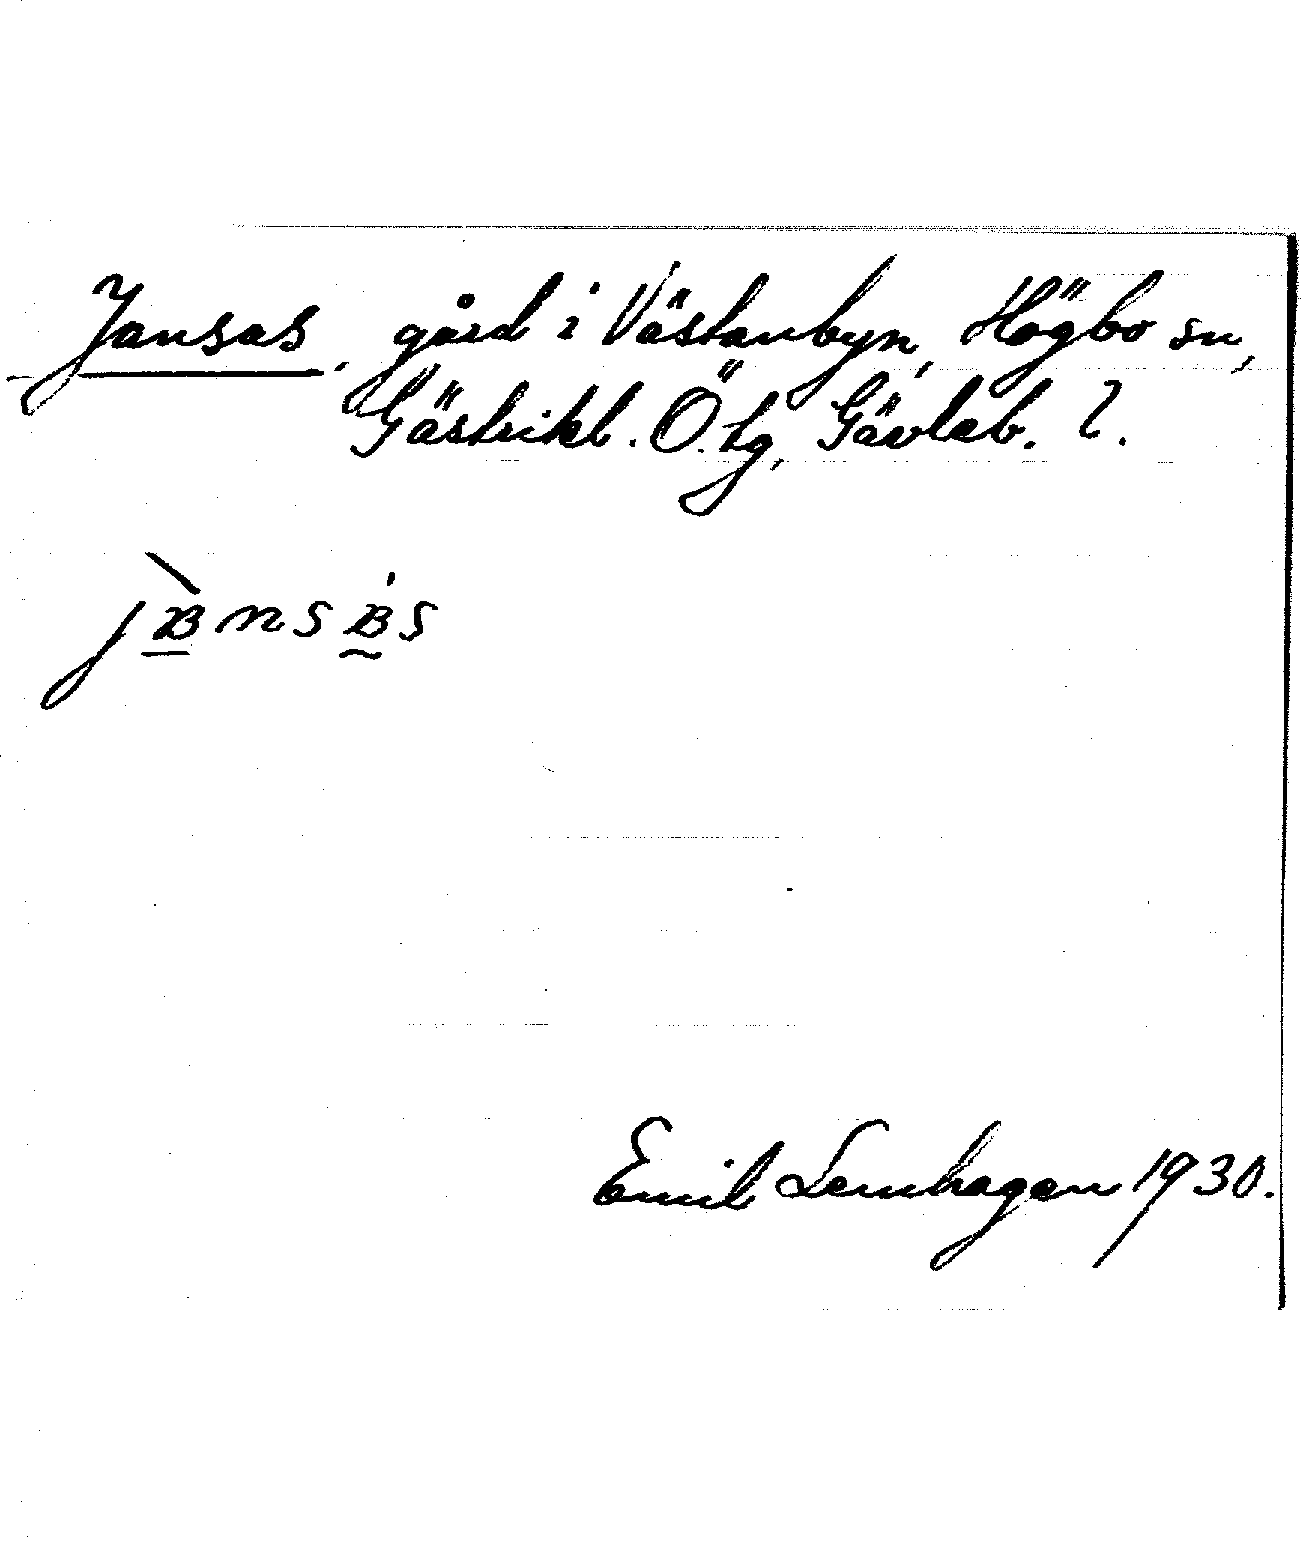 Jansas, gård i Västanbyn, Högbo sn,
Gästrikl. Ö. tg, Gävleb. l.
jànsas
Emil Lernhagen 1930.